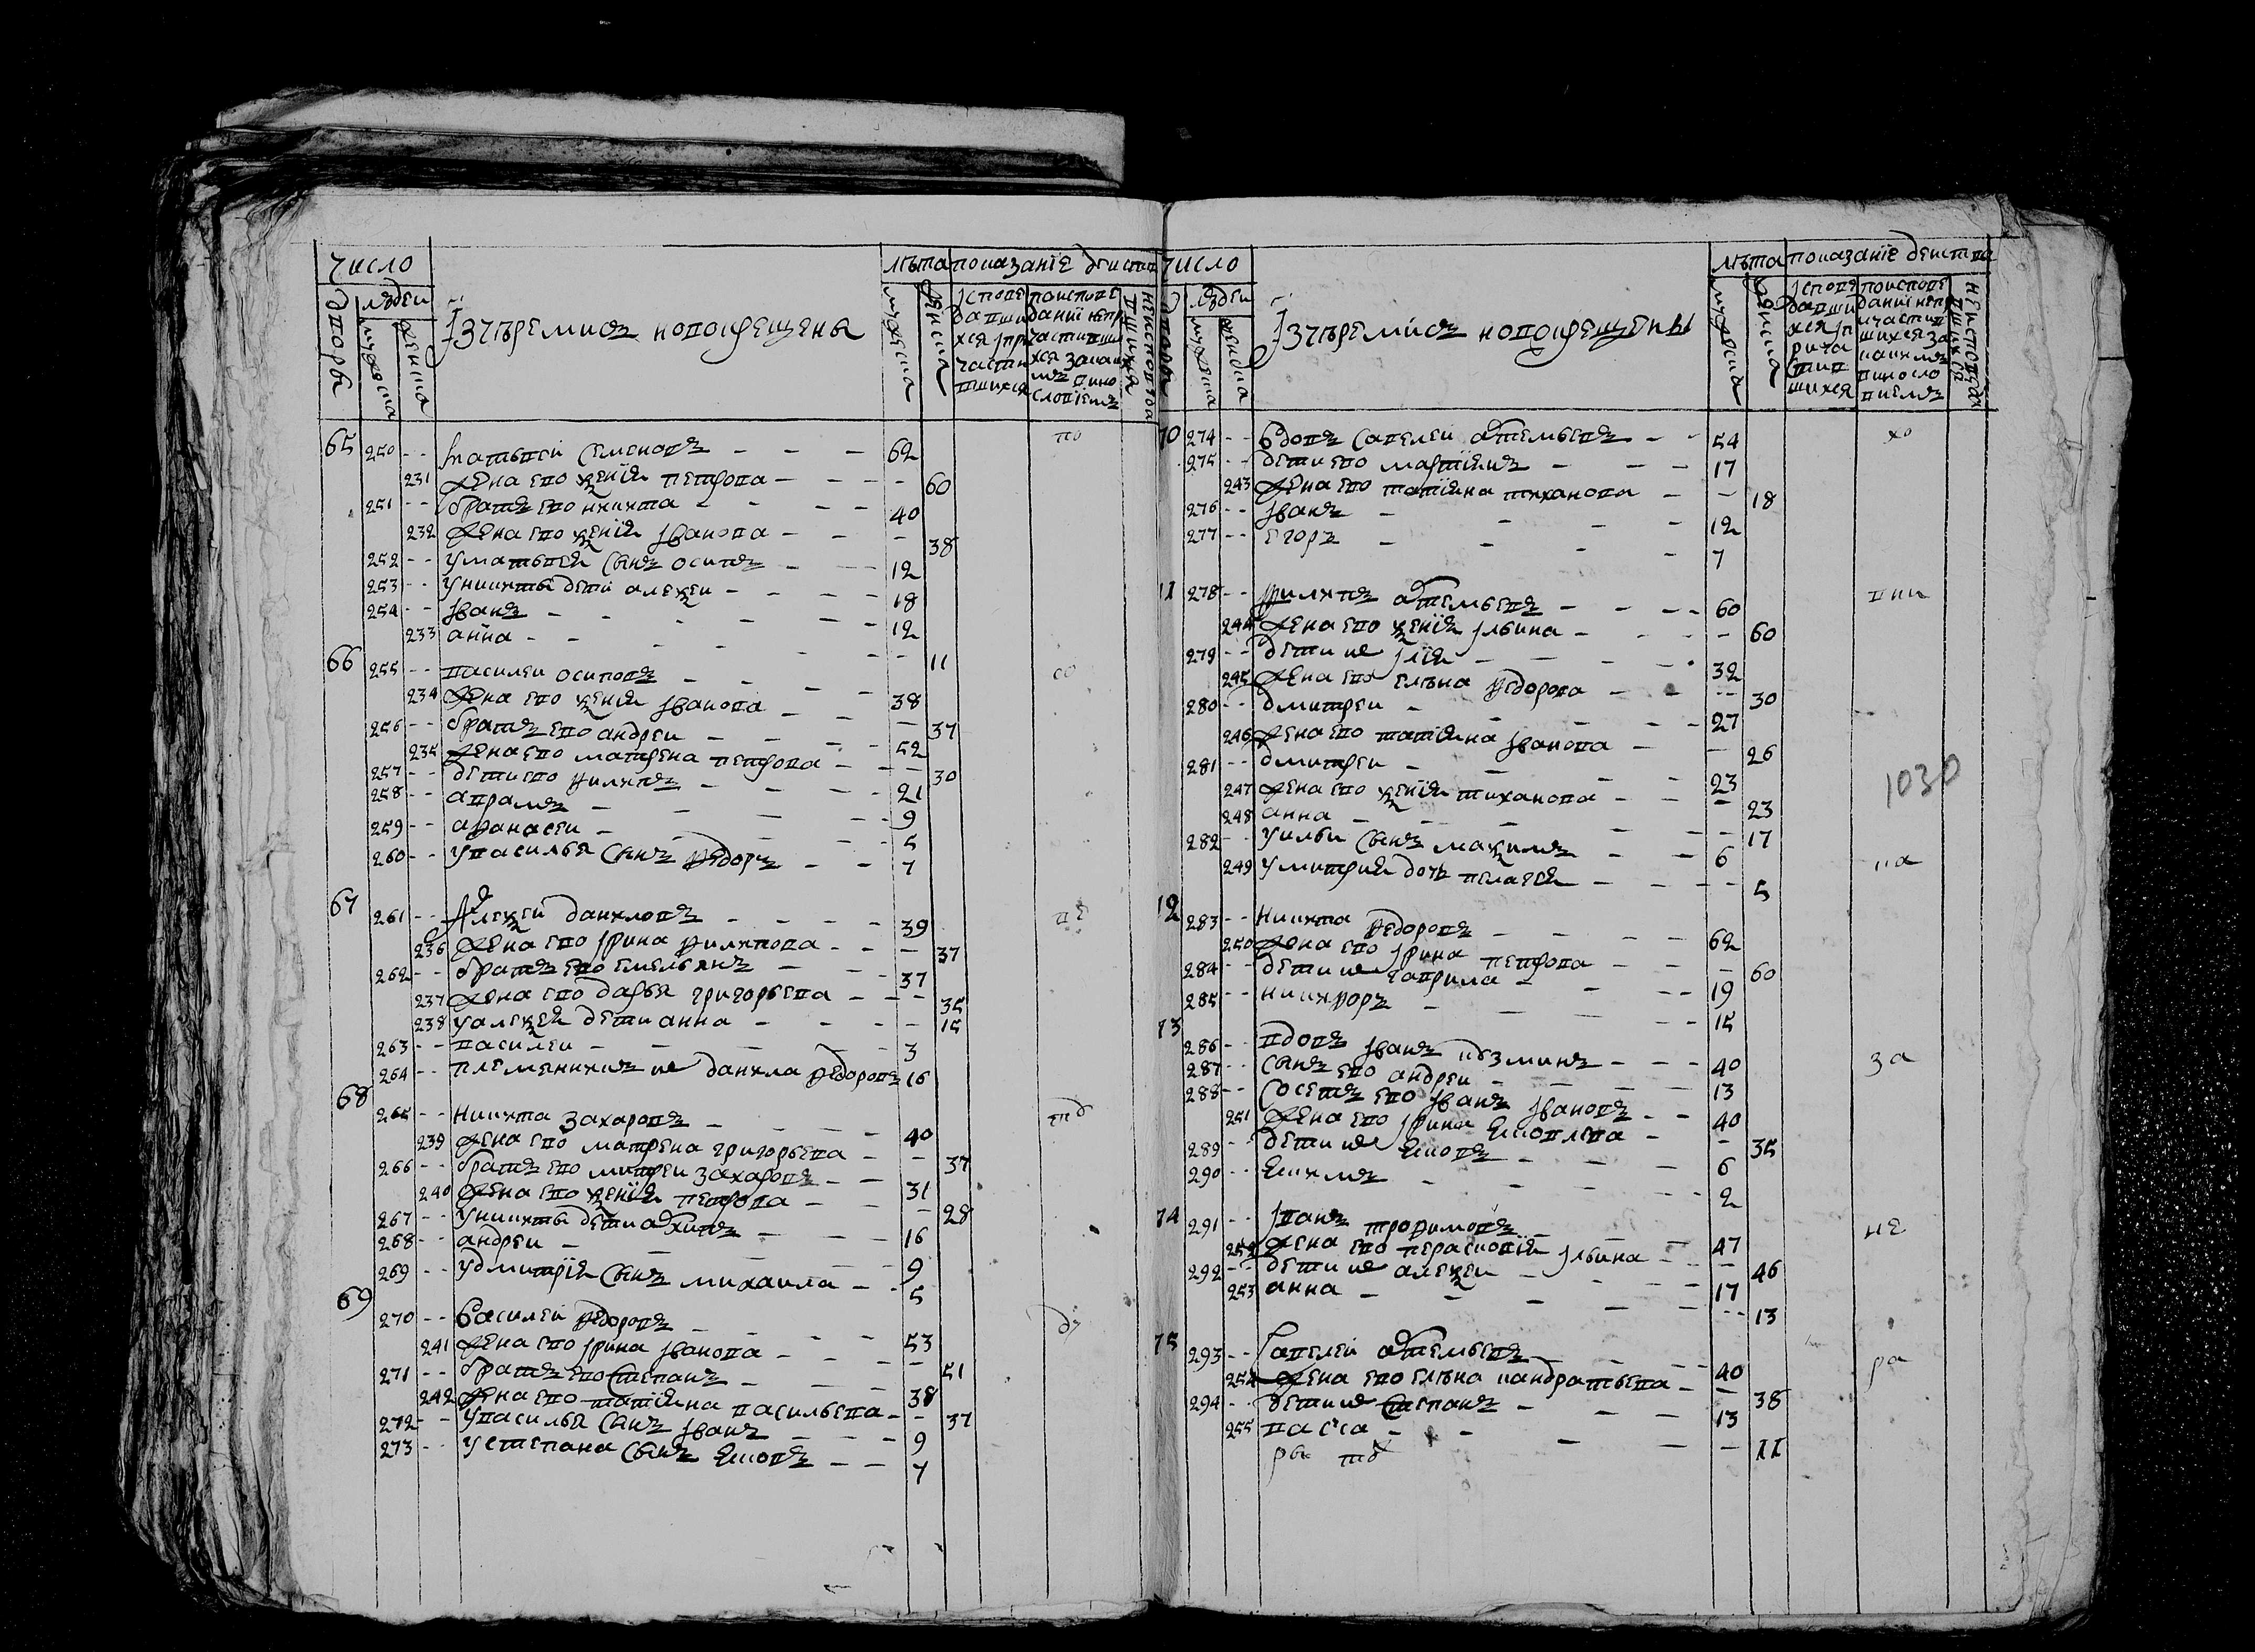 число
лѣта показание действ
дворы
людей
мужеска
женска
Из черемисъ новокрещены
мужеска
женска
исповедавшихся и причастившихся
по исповедании не причастившихся за каким винословиемъ
не исповедавшихся
65 250 -- Матвей Семеновъ - - - 62 по
231 жена ево Ксения Петрова - - - - 60
251 -- братъ ево Никита - - - - 40
232 жена ево Ксения Иванова - - - 38
252 -- у Матвея сынъ Осипъ - - - 12
253 -- у Никиты дети Алексей - - - - 18
254 -- Иванъ - - - - - - 12
233 Анна - - - - - - 11
66 255 -- Василей Осиповъ - - - - 38 со
234 жена ево Ксения Иванова - - - 37
256 -- братъ ево Андрей - - - - 52
235 жена ево Матрена Петрова - - - 30
257 -- дети ево Филипъ - - - - 21
258 -- Аврамъ - - - - - 9
259 -- Афанасей - - - - 5
260 -- у Василья сынъ Федоръ - - 7
67 261 -- Алексей Даниловъ - - - - 39
236 жена ево Ирина Филипова - - - 37
262 -- братъ ево Емельянъ - - - 37
237 жена ево Дарья Григорьева - - - 35
238 у Алексея дети Анна - - - - 15
263 -- Василей - - - - 3
264 -- племянникъ ис Данила Федоровъ 16
68 265 -- Никита Захаровъ - - - - 40
239 жена ево Матрена Григорьева - - 37
266 -- братъ ево Митрей Захаровъ - - 31
240 жена ево Ксения Петрова - - - 28
267 -- у Никиты дети Архипъ - - - 16
268 -- Андрей - - - - - 9
269 -- у Дмитрия сынъ Михаила - - 5
69 270 -- Василей Федоровъ - - - - 53
241 жена ево Ирина Иванова - - - - 51
271 -- братъ ево Степанъ - - - - 38
242 жена ево Татияна Васильева - - 37
272 -- у Василья сынъ Иванъ - - - 9
273 -- у Степана сынъ Яковъ - - 7
число
лѣта показание действа
дворы
людей
мужеска
женска
Из черемисъ новокрещены
мужеска
женска
исповедавшихся и причастившихся
по исповедании не причастившихся за каким винословиемъ
не исповедавшихся
70 274 -- вдовъ Савелей Артемьевъ - - 54 хо
275 -- дети ево Мартиянъ - - - 17
243 жена ево Татияна Тиханова - - 18
276 -- Иванъ - - - - 12
277 -- Егоръ - - - - 7
71 278 -- Филипъ Артемьевъ - - - - 60
244 жена ево Ксения Ильина - - - - 60
279 -- дети ис Илия - - - - 32
245 жена ево Елена Федорова - - - 30
280 -- Дмитрей - - - - 27
246 жена ево Татияна Иванова - - 26
281 -- Дмитрей - - - - 23
1030
247 жена ево Ксения Тиханова - - - 23
248 Анна - - - - - - 17
282 -- у Ильи сынъ Максимъ - - 6
249 у Митрия дочь Пелагея - - - - 5 на
72 283 -- Никита Федоровъ - - - - 62
250 жена ево Ирина Петрова - - - 60
284 -- дети ис Гаврила - - - - 19
285 -- Никифоръ - - - - 15
73 286 -- вдовъ Иванъ Кузминъ - - - 40 за
287 -- сынъ ево Андрей - - - - 13
288 -- соседъ ево Иванъ Ивановъ - - 40
251 жена ево Ирина Яковлева - - 35
289 -- дети ис Яковъ - - - 6
290 -- Якимъ - - - - 2
74 291 -- Иванъ Трофимовъ - - - 47 не
252 жена ево Парасковия Ильина - - - 46
292 -- дети ис Алексей - - - - 17
253 Анна - - - - - - 13
75 293 -- Савелей Артемьевъ - - - 40 ра
254 жена ево Елена Кандратьева - - 38
294 -- дети ис Степанъ - - - - 13
255 Васса - - - - - 11